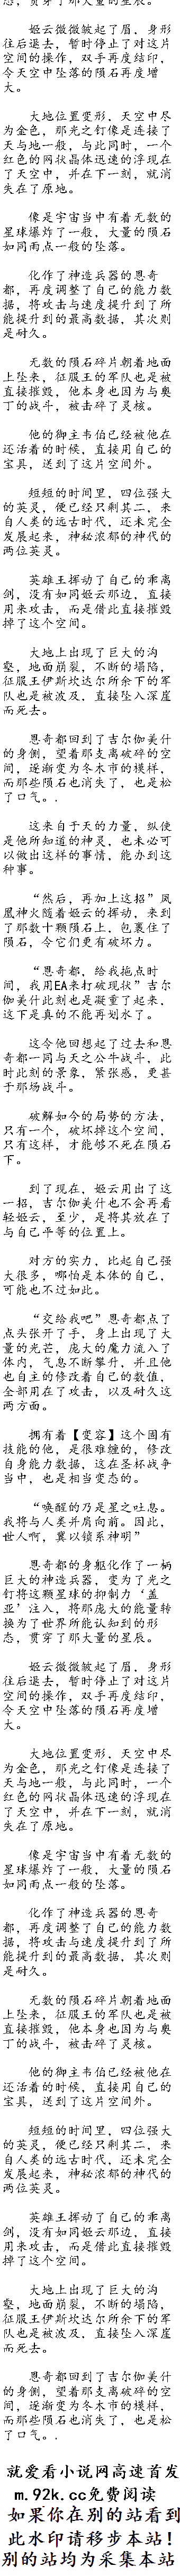 态，贯穿了那大量的星辰。
姬云微微皱起了眉，身形
往后退去，暂时停止了对这片
空间的操作，双手再度结印，
令天空中坠落的陨石再度增
大。
大地位置变形，天空中尽
为金色，那光之钉像是连接了
天与地一般，与此同时，一个
红色的网状晶体迅速的浮现在
了天空中，并在下一刻，就消
失在了原地。
像是宇宙当中有着无数的
星球爆炸了一般，大量的陨石
如同雨点一般的坠落。
化作了神造兵器的恩奇
都，再度调整了自己的能力数
据，将攻击与速度提升到了所
能提升到的最高数据，其次则
是耐久。
无数的陨石碎片朝着地面
上坠来，征服王的军队也是被
直接摧毁，他本身也因为与奥
丁的战斗，被击碎了灵核。
他的御主韦伯已经被他在
还活着的时候，直接用自己的
宝具，送到了这片空间外。
短短的时间里，四位强大
的英灵，便已经只剩其二，来
自人类的远古时代，还未完全
发展起来，神秘浓郁的神代的
两位英灵。
英雄王挥动了自己的乖离
剑，没有如同姬云那边，直接
用来攻击，而是借此直接摧毁
掉了这个空间。
大地上出现了巨大的沟
壑，地面崩裂，不断的塌陷，
征服王伊斯坎达尔所余下的军
队也是被波及，直接坠入深崖
而死去。
恩奇都回到了吉尔伽美什
的身侧，望着那支离破碎的空
间，逐渐变为冬木市的模样，
而那些陨石也消失了，也是松
了口气。.
这来自于天的力量，纵使
是他所知道的神灵，也未必可
以做出这样的事情，能办到这
种事。
“然后，再加上这招”凤
凰神火随着姬云的挥动，来到
了那数十颗陨石上，包裹住了
陨石，令它们更有破坏力。
“恩奇都，给我拖点时
间，我用EA来打破现状”吉尔
伽美什此刻也是凝重了起来，
这下是真的不能再划水了。
这令他回想起了过去和恩
奇都一同与天之公牛战斗，此
时此刻的景象，紧张感，更甚
于那场战斗。
破解如今的局势的方法，
只有一个，破坏掉这个空间，
只有这样，才能够不死在陨石
下。
到了现在，姬云用出了这
一招，吉尔伽美什也不会再看
轻姬云，至少，是将其放在了
与自己平等的位置上。
对方的实力，比起自己强
大很多，哪怕是本体的自己，
可能也不过如此。
“交给我吧”恩奇都点了
点头张开了手，身上出现了大
量的光芒，庞大的魔力流入了
体内，气息不断攀升，并且他
也自主的修改着自己的数值，
全部用在了攻击，以及耐久这
两方面。
拥有着【变容】这个固有
技能的他，是很难缠的，修改
自身能力数据，这在圣杯战争
当中，也是相当变态的。
“唤醒的乃是星之吐息。
我将与人类并肩向前。因此，
世人啊，冀以锁系神明”
恩奇都的身躯化作了一柄
巨大的神造兵器，变为了光之
钉将这颗星球的抑制力‘盖
亚’注入，将那庞大的能量转
换为了世界所能认知到的形
态，贯穿了那大量的星辰。
姬云微微皱起了眉，身形
往后退去，暂时停止了对这片
空间的操作，双手再度结印，
令天空中坠落的陨石再度增
大。
大地位置变形，天空中尽
为金色，那光之钉像是连接了
天与地一般，与此同时，一个
红色的网状晶体迅速的浮现在
了天空中，并在下一刻，就消
失在了原地。
像是宇宙当中有着无数的
星球爆炸了一般，大量的陨石
如同雨点一般的坠落。
化作了神造兵器的恩奇
都，再度调整了自己的能力数
据，将攻击与速度提升到了所
能提升到的最高数据，其次则
是耐久。
无数的陨石碎片朝着地面
上坠来，征服王的军队也是被
直接摧毁，他本身也因为与奥
丁的战斗，被击碎了灵核。
他的御主韦伯已经被他在
还活着的时候，直接用自己的
宝具，送到了这片空间外。
短短的时间里，四位强大
的英灵，便已经只剩其二，来
自人类的远古时代，还未完全
发展起来，神秘浓郁的神代的
两位英灵。
英雄王挥动了自己的乖离
剑，没有如同姬云那边，直接
用来攻击，而是借此直接摧毁
掉了这个空间。
大地上出现了巨大的沟
壑，地面崩裂，不断的塌陷，
征服王伊斯坎达尔所余下的军
队也是被波及，直接坠入深崖
而死去。
恩奇都回到了吉尔伽美什
的身侧，望着那支离破碎的空
间，逐渐变为冬木市的模样，
而那些陨石也消失了，也是松
了口气。.
就爱看小说网高速首发
m.92k.cc免费阅读
如果你在别的站看到
此水印请移步本站！
别的站均为采集本站